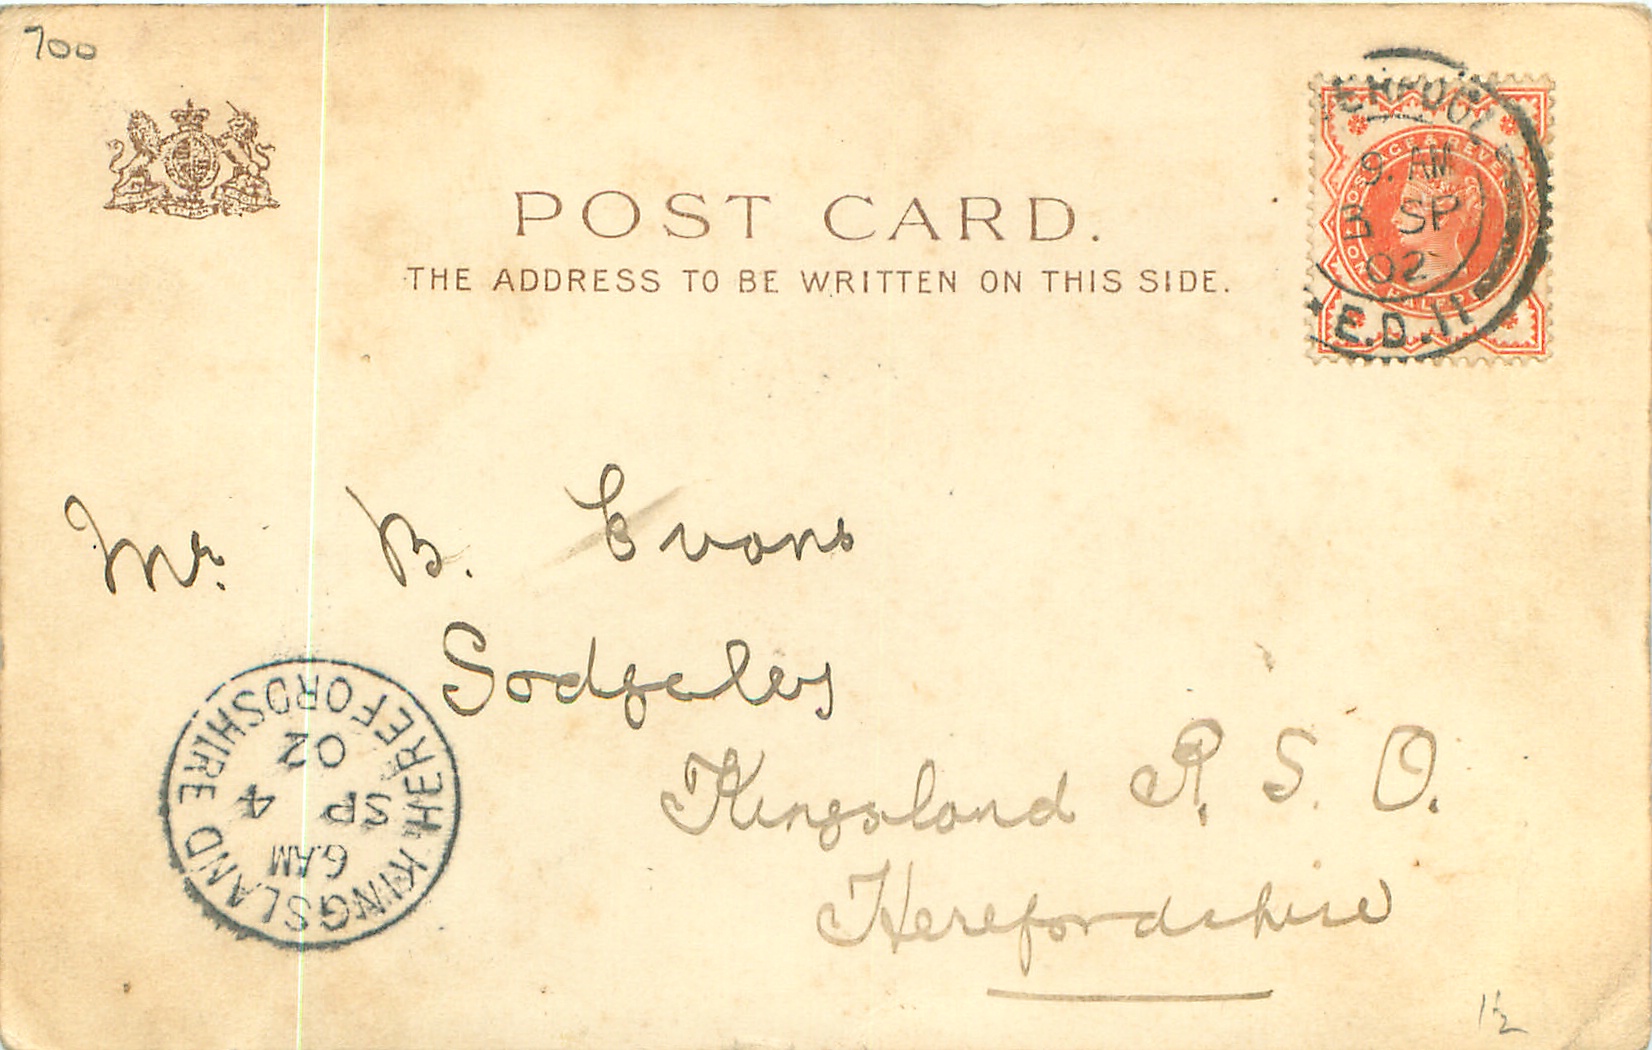 700
POST CARD.
THE ADDRESS TO BE WRITTEN ON THIS SIDE.
ERPOOL
9. AM
3 SP
02
E.D.11
Mr. B. Evans
Kingsland R. S. O.
Herefordshire
KINGSLAND HEREFORDSHIRE
6.AM
SP 4
02
1½